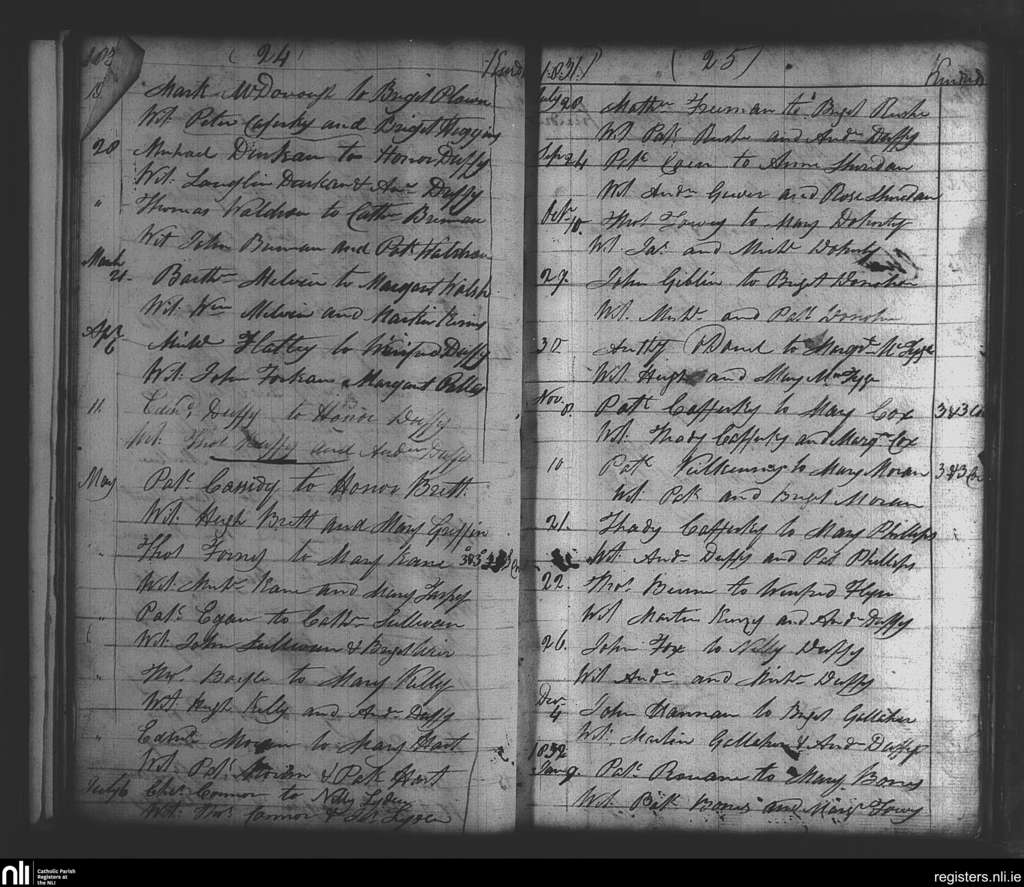 183
( 24 )
Kindred
18 Mark McDonough to Briget
Wit. Peter Caferky and Briget Higgins
28 Michael Dunkan to Honor Duffy
Wit. Laughlin Dunkan & Anw Duffy
" Thomas Waldron to Cathn Brennan
Wit John Brennan and Patk Waldron
March
21. Bartw Melvin to Margaret Walsh
Wit. Wm Melvin and Martin
Apr
6 Michl Flatley to Winifred Duffy
Wit. John and Margaret
11. Edmd Duffy to Honor Duffy
Wit. Thos Duffy and Andw Duffy
May Patk Cassidy to Honor Brett
Wit. Hugh Brett and Mary Griffin
" Thos to Mary Kane 3 & 3
Wit Michl Kane and Mary
Patk Egan to Cathn Sullivan
Wit John Sullivan & Briget
" Thos Boyle to Mary Killy
Wit Hugh Killy and Andw Duffy
" Edmd Moran to Mary Hart
Wit Patk Moran & Patk Hart
July 6 Chas Connor to Nelly Lyden
Wit. Thos Connor & Lyden
1831 ( 25 )
Kindred
July 28 Mathw Freeman to Briget Rushe
Wit Patk Rushe and Andw Duffy
Sepr 24 Patk to Anne Sheridan
Wit Andw and Rose Sheridan
Octr
10. Thos Towey to Mary Doherty
Wit Jas and Michl Doherty
29. John Giblin to Briget Donohoe
Wit. Michl and Patk Donohoe
30 Anthy O'Donel to Margt
Wit Hugh and Mary
Nov.
8. Patk Cafferky to Mary Cox 3 & 3
Wit. Thady Cafferky and Margt Cox
10 Patk Kilkenny to Mary Moran 3 & 3
Wit. Patk and Briget Moran
21. Thady Cafferky to Mary Phillips
Wit. Andw Duffy and Pat Phillips
22. Thos to Winifred Flynn
Wit Martin and Andw Duffy
26. John Fox to Nelly Duffy
Wit Andw and Michl Duffy
Dec
4 John Hannan to Briget Gallaher
Wit. Martin Gallaher & Andw Duffy
1832
Jany 9. Patk Rouane to Mary Bones
Wit. Patk Bones and Mary Towey
nli
Catholic Parish
Registers at
the NLI
registers.nli.ie